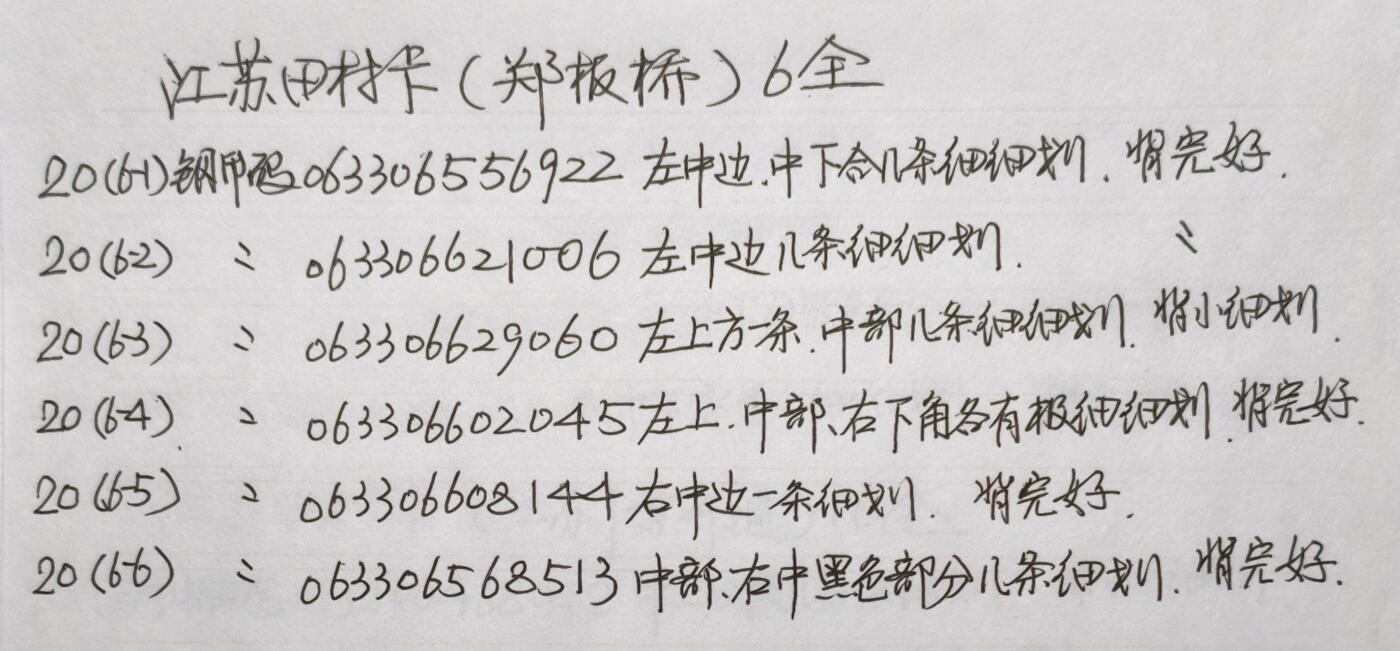 江苏田村卡（郑板桥）6全
20(6-1)钢甲码063306556922左中边.中下合几条细细划.背完好.
20(6-2) 〃 063306621006左中边几条细细划. 〃
20(6-3) 〃 063306629060左上方一条.中部几条细细划.背小细划.
20(6-4) 〃 063306602045左上.中部、右下角各有极细细划.背完好.
20(6-5) 〃 063306608144右中边一条细划.背完好.
20(6-6) 〃 063306568513中部.右中黑色部分几条细划.背完好.